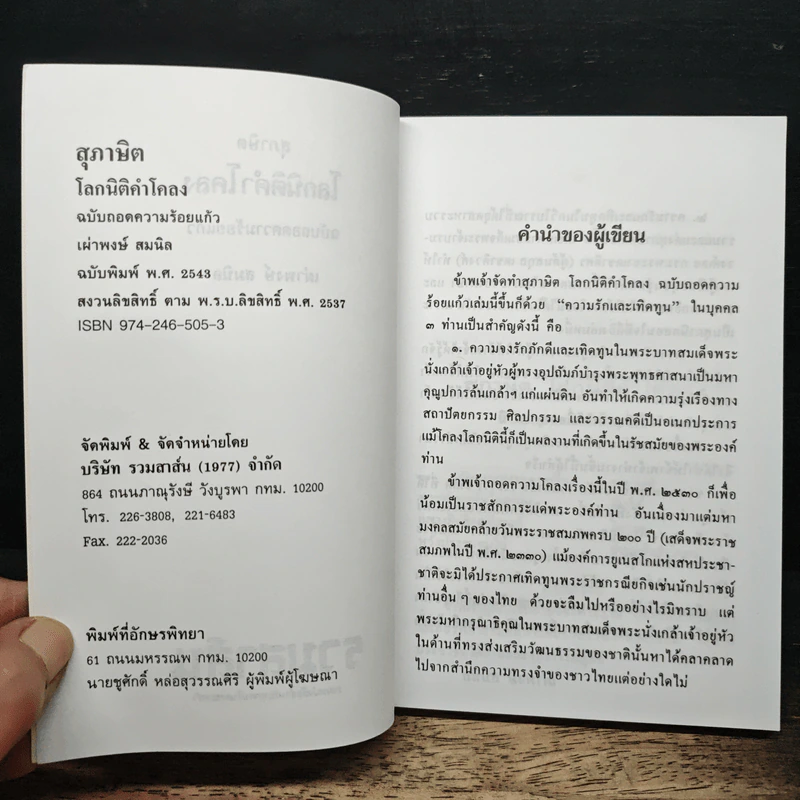 สุภาษิต
โลกนิติคำโคลง
ฉบับถอดความร้อยแก้ว
เผ่าพงษ์ สมนิล
ฉบับพิมพ์ พ.ศ. 2543
สงวนลิขสิทธิ์ ตาม พ.ร.บ.ลิขสิทธิ์ พ.ศ. 2537
ISBN 974-246-505-3
จัดพิมพ์ & จัดจำหน่ายโดย
บริษัท รวมสาส์น (1977) จำกัด
864 ถนนภาณุรังษี วังบูรพา กทม. 10200
โทร. 226-3808, 221-6483
Fax. 222-2036
พิมพ์ที่อักษรพิทยา
61 ถนนมหรรณพ กทม. 10200
นายชูศักดิ์ หล่อสุวรรณศิริ ผู้พิมพ์ผู้โฆษณา
คำนำของผู้เขียน
ข้าพเจ้าจัดทำสุภาษิต โลกนิติคำโคลง ฉบับถอดความ
ร้อยแก้วเล่มนี้ขึ้นก็ด้วย “ความรักและเทิดทูน” ในบุคคล
๓ ท่านเป็นสำคัญดังนี้ คือ
๑. ความจงรักภักดีและเทิดทูนในพระบาทสมเด็จพระ
นั่งเกล้าเจ้าอยู่หัวผู้ทรงอุปถัมภ์บำรุงพระพุทธศาสนาเป็นมหา
คุณูปการล้นเกล้าฯ แก่แผ่นดิน อันทำให้เกิดความรุ่งเรืองทาง
สถาปัตยกรรม ศิลปกรรม และวรรณคดีเป็นอเนกประการ
แม้โคลงโลกนิตินี้ก็เป็นผลงานที่เกิดขึ้นในรัชสมัยของพระองค์
ท่าน
ข้าพเจ้าถอดความโคลงเรื่องนี้ในปี พ.ศ. ๒๕๓๐ ก็เพื่อ
น้อมเป็นราชสักการะแด่พระองค์ท่าน อันเนื่องมาแต่มหา
มงคลสมัยคล้ายวันพระราชสมภพครบ ๒๐๐ ปี (เสด็จพระราช
สมภพในปี พ.ศ. ๒๓๓๐) แม้องค์การยูเนสโกแห่งสหประชา-
ชาติจะมิได้ประกาศเทิดทูนพระราชกรณียกิจเช่นนักปราชญ์
ท่านอื่น ๆ ของไทย ด้วยจะลืมไปหรืออย่างไรมิทราบ แต่
พระมหากรุณาธิคุณในพระบาทสมเด็จพระนั่งเกล้าเจ้าอยู่หัว
ในด้านที่ทรงส่งเสริมวัฒนธรรมของชาตินั้นหาได้คลาดคลาด
ไปจากสำนึกความทรงจำของชาวไทยแต่อย่างใดไม่